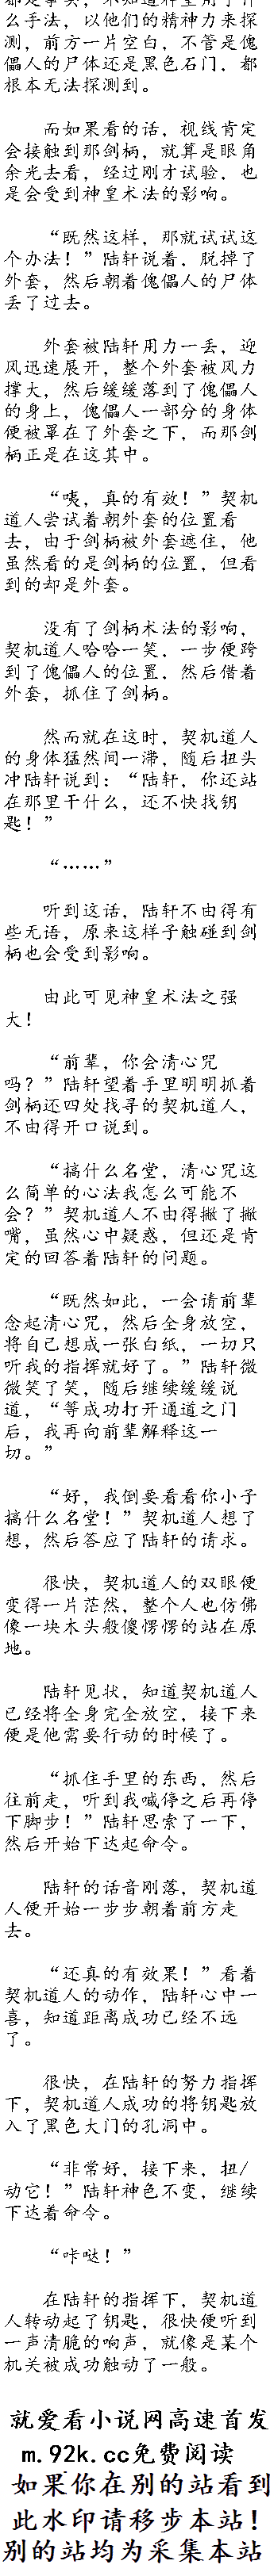 都是事实，不知道神皇用了什
么手法，以他们的精神力来探
测，前方一片空白，不管是傀
儡人的尸体还是黑色石门，都
根本无法探测到。
而如果看的话，视线肯定
会接触到那剑柄，就算是眼角
余光去看，经过刚才试验，也
是会受到神皇术法的影响。
“既然这样，那就试试这
个办法！”陆轩说着，脱掉了
外套，然后朝着傀儡人的尸体
丢了过去。
外套被陆轩用力一丢，迎
风迅速展开，整个外套被风力
撑大，然后缓缓落到了傀儡人
的身上，傀儡人一部分的身体
便被罩在了外套之下，而那剑
柄正是在这其中。
“咦，真的有效！”契机
道人尝试着朝外套的位置看
去，由于剑柄被外套遮住，他
虽然看的是剑柄的位置，但看
到的却是外套。
没有了剑柄术法的影响，
契机道人哈哈一笑，一步便跨
到了傀儡人的位置，然后借着
外套，抓住了剑柄。
然而就在这时，契机道人
的身体猛然间一滞，随后扭头
冲陆轩说到：“陆轩，你还站
在那里干什么，还不快找钥
匙！”
“……”
听到这话，陆轩不由得有
些无语，原来这样子触碰到剑
柄也会受到影响。
由此可见神皇术法之强
大！
“前辈，你会清心咒
吗？”陆轩望着手里明明抓着
剑柄还四处找寻的契机道人，
不由得开口说到。
“搞什么名堂，清心咒这
么简单的心法我怎么可能不
会？”契机道人不由得撇了撇
嘴，虽然心中疑惑，但还是肯
定的回答着陆轩的问题。
“既然如此，一会请前辈
念起清心咒，然后全身放空，
将自己想成一张白纸，一切只
听我的指挥就好了。”陆轩微
微笑了笑，随后继续缓缓说
道，“等成功打开通道之门
后，我再向前辈解释这一
切。”
“好，我倒要看看你小子
搞什么名堂！”契机道人想了
想，然后答应了陆轩的请求。
很快，契机道人的双眼便
变得一片茫然，整个人也仿佛
像一块木头般傻愣愣的站在原
地。
陆轩见状，知道契机道人
已经将全身完全放空，接下来
便是他需要行动的时候了。
“抓住手里的东西，然后
往前走，听到我喊停之后再停
下脚步！”陆轩思索了一下，
然后开始下达起命令。
陆轩的话音刚落，契机道
人便开始一步步朝着前方走
去。
“还真的有效果！”看着
契机道人的动作，陆轩心中一
喜，知道距离成功已经不远
了。
很快，在陆轩的努力指挥
下，契机道人成功的将钥匙放
入了黑色大门的孔洞中。
“非常好，接下来，扭/
动它！”陆轩神色不变，继续
下达着命令。
“咔哒！”
在陆轩的指挥下，契机道
人转动起了钥匙，很快便听到
一声清脆的响声，就像是某个
机关被成功触动了一般。
就爱看小说网高速首发
m.92k.cc免费阅读
如果你在别的站看到
此水印请移步本站！
别的站均为采集本站